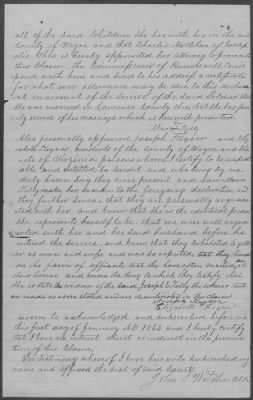 all of the said Children She has with her in the said
County of Wayne and that Charles McMillan of Gallip
olis Ohio is hereby appointed her attorney to prosecute
this Claim. the
with him and send to his address a certificate
for what ever allowance may be due to this declara
on account of the service of the said Soldier
She was married in Lawrence County Ohio, that she has for
record of her marriage which is herewith presented
Kelly
Also personally appeared Joseph Frasier and
Frasier, residents of the County of Wayne and the
State of Virginia persons whom I certify to be respect
able and entitled to credit and who being by me
duly sworn say they were present and saw
Kelly make her mark to the foregoing declaration and
they further swear that they are personally acquain
ted with her and know that she is the identical person
she represents herself to be, that we are well acqua
inted with her and her said husband before he
entered the service, and know that they cohabited togeth
er as man and wife and was so reputed, that they lived
on the farm of affiants and she has often visited at
their house and knows the thing to which they testify
She is still the widow of the said Joseph Kelly the
as above stated and are disinterested in this claim
Joseph Frasier
Elizabeth Frasier
Sworn to acknowledged and subscribed before me
this first day of January A.D. 1863 and I hereby certify
that I have no interest direct or indirect in the prosecu
tion of this Claim.
In testimony whereof I have hereunto subscribed my
name and affixed the seal of said Court
John